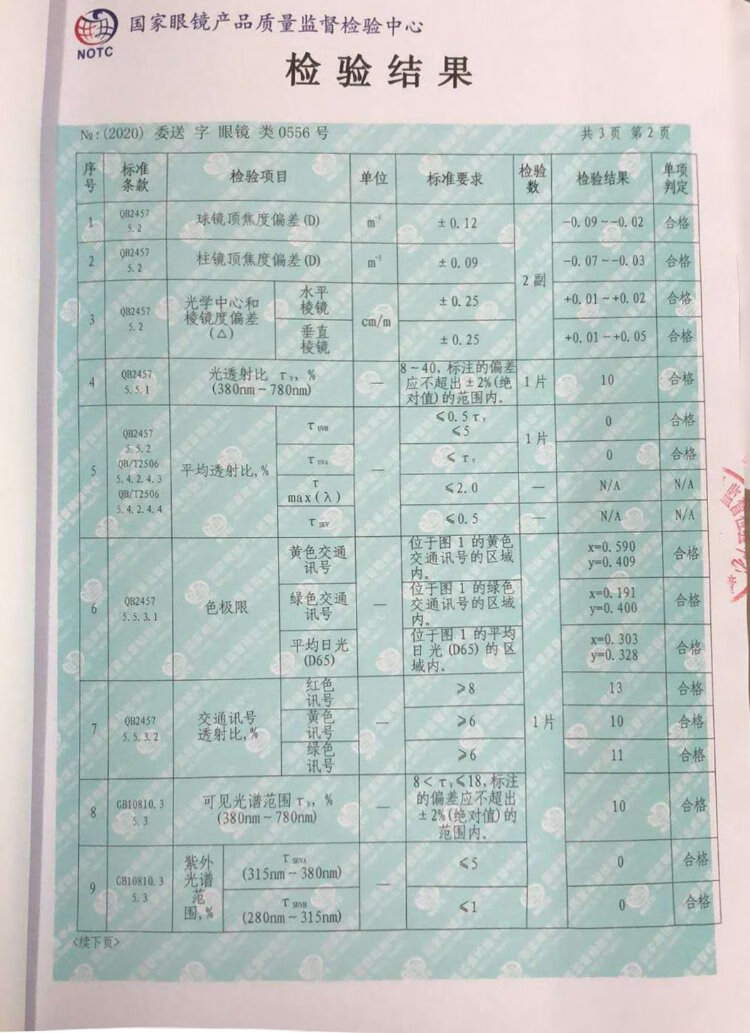 国家眼镜产品质量监督检验中心
NOTC
检验结果
№:(2020) 委送 字 眼镜 类0556号
共3页 第2页
序号 标准条款 检验项目 单位 标准要求 检验数 检验结果 单项判定
1 QB2457 5.2 球镜顶焦度偏差(D) m⁻¹ ±0.12 -0.09~-0.02 合格
2 QB2457 5.2 柱镜顶焦度偏差(D) m⁻¹ ±0.09 2副 -0.07~-0.03 合格
3 QB2457 5.2 光学中心和棱镜度偏差(△) 水平棱镜 cm/m ±0.25 +0.01~+0.02 合格
垂直棱镜 ±0.25 +0.01~+0.05 合格
4 QB2457 5.5.1 光透射比 τV,% (380nm~780nm) — 8~40,标注的偏差应不超出±2%(绝对值)的范围内。 1片 10 合格
5 QB2457 5.5.2 QB/T2506 5.4.2.4.3 QB/T2506 5.4.2.4.4 平均透射比,% τSUVB — ≤0.5τV ≤5 1片 0 合格
τSUVA ≤τV 0 合格
τmax(λ) ≤2.0 — N/A N/A
τSUV ≤0.5 — N/A N/A
6 QB2457 5.5.3.1 色极限 黄色交通讯号 — 位于图1的黄色交通讯号的区域内。 x=0.590 y=0.409 合格
绿色交通讯号 位于图1的绿色交通讯号的区域内。 x=0.191 y=0.400 合格
平均日光(D65) 位于图1的平均日光(D65)的区域内。 x=0.303 y=0.328 合格
7 QB2457 5.5.3.2 交通讯号透射比,% 红色讯号 — ≥8 1片 13 合格
黄色讯号 ≥6 10 合格
绿色讯号 ≥6 11 合格
8 GB10810.3 5.3 可见光谱范围τV,% (380nm~780nm) — 8<τV≤18,标注的偏差应不超出±2%(绝对值)的范围内。 10 合格
9 GB10810.3 5.3 紫外光谱范围,% τSUVA (315nm~380nm) — ≤5 0 合格
τSUVB (280nm~315nm) ≤1 0 合格
<续下页>